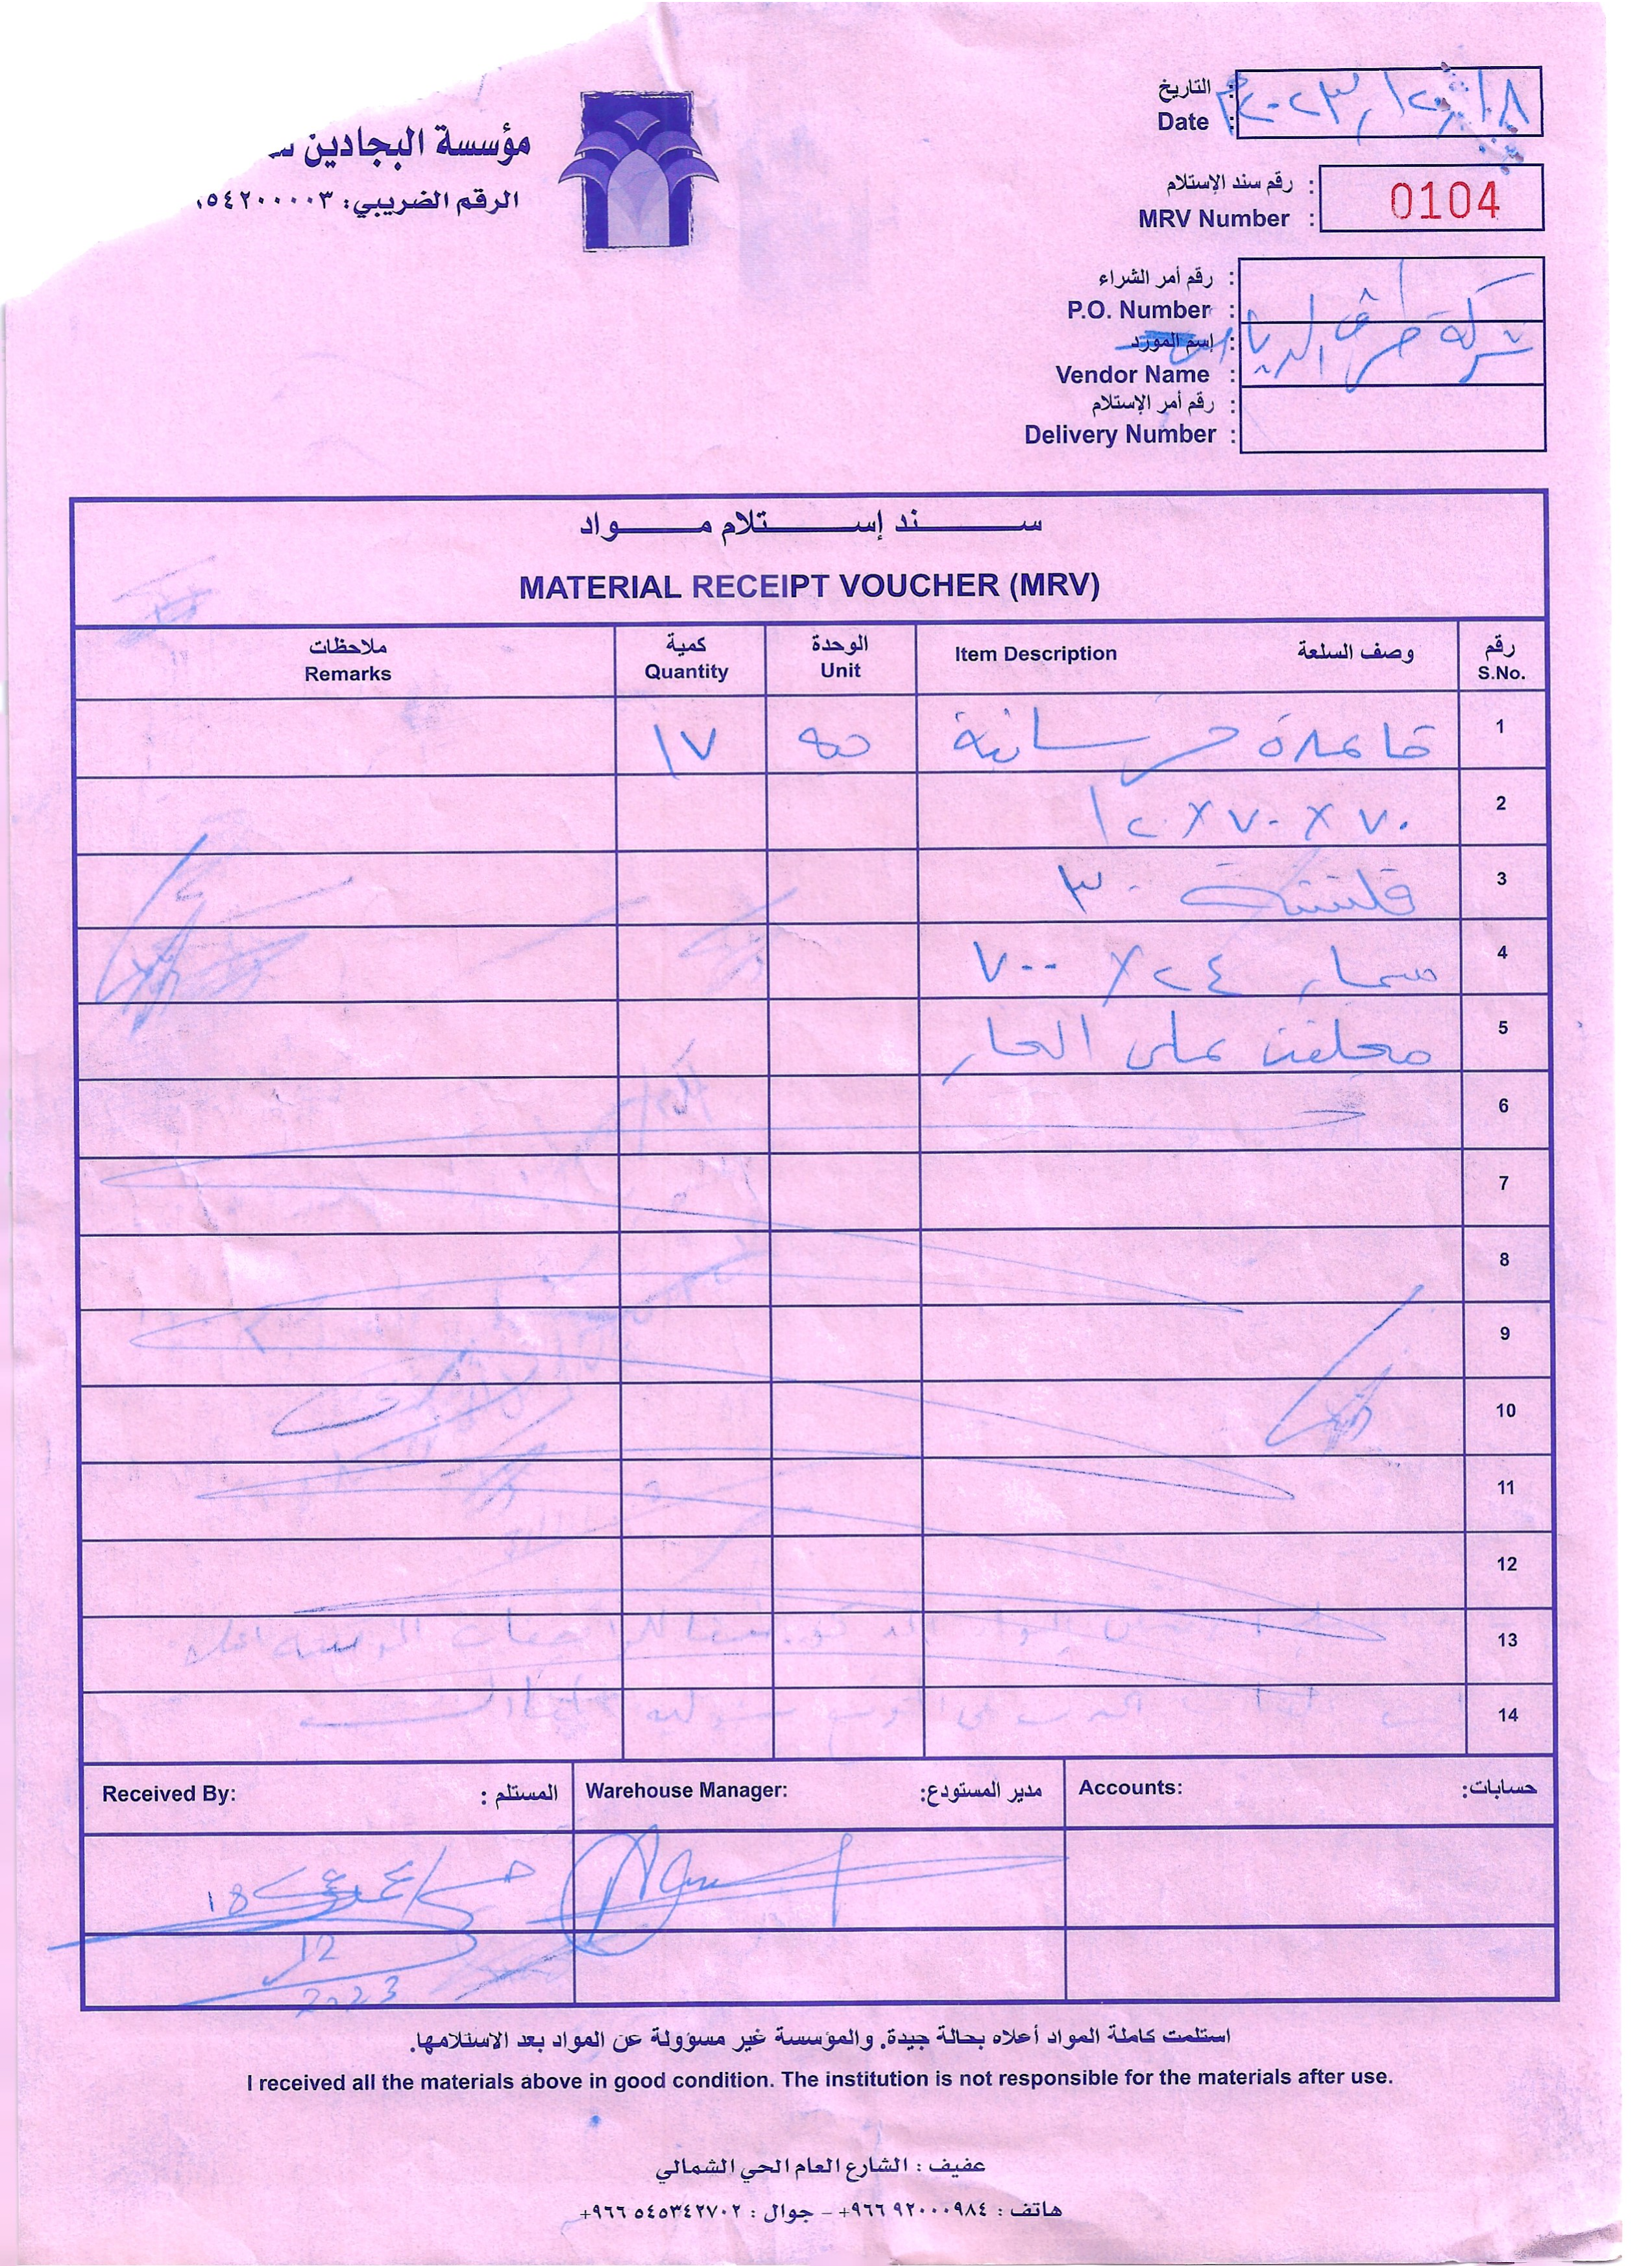 مؤسسة البجادين
الرقم الضريبي: ٥٤٢٠٠٠٠٣
التاريخ :
Date : ٢٠٢٣/١٢/١٨م
رقم سند الإستلام :
MRV Number : 0104
رقم أمر الشراء :
P.O. Number :
إسم المورد :
شركة طرق
Vendor Name :
رقم أمر الإستلام :
Delivery Number :
سند إستلام مواد
MATERIAL RECEIPT VOUCHER (MRV)
ملاحظات كمية الوحدة Item Description وصف السلعة رقم
Remarks Quantity Unit S.No.
1 قاعدة خرسانية حبه ١٧
2 ٧٠ × ٧٠ × ١٢٠
3 ٣٠
4 مسمار ٢٤ × ٧٠٠
5 مجلفن على الحار
6
7
8
9
10
11
12
13
14
Received By: المستلم : Warehouse Manager: مدير المستودع: Accounts: حسابات:
18
12
2023
استلمت كاملة المواد أعلاه بحالة جيدة. والمؤسسة غير مسؤولة عن المواد بعد الاستلامها.
I received all the materials above in good condition. The institution is not responsible for the materials after use.
عفيف : الشارع العام الحي الشمالي
هاتف : ٩٢٠٠٠٩٨٤ ٩٦٦+ – جوال : ٥٤٥٣٤٢٧٠٢ ٩٦٦+